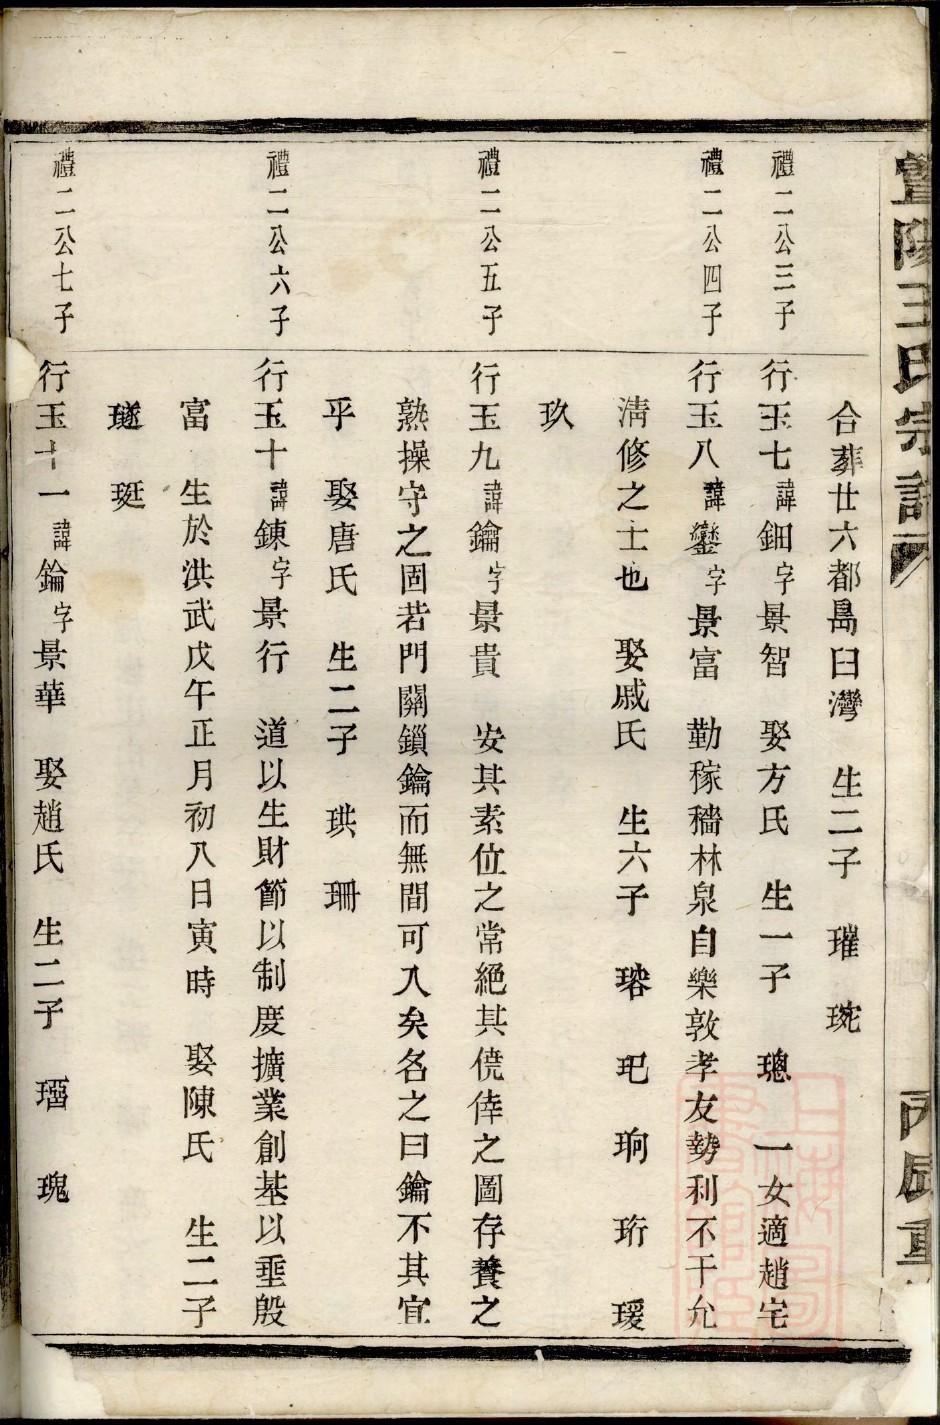 暨陽王氏宗譜
丙辰重
合葬廿六都島臼灣　生二子　璀　琬
禮二公三子
行玉七諱鈿字景智　娶方氏　生一子　璁　一女適趙宅
禮二公四子
行玉八諱鑾字景富　勤稼穡林泉自樂敦孝友勢利不干允
淸修之士也　娶戚氏　生六子　瑢　玘　珦　珩　瑗
玖
禮二公五子
行玉九諱鑰字景貴　安其素位之常絕其僥倖之圖存養之
熟操守之固若門關鎖鑰而無間可入矣名之曰鑰不其宜
乎　娶唐氏　生二子　珙　珊
禮二公六子
行玉十諱鍊字景行　道以生財節以制度擴業創基以垂殷
富　生於洪武戊午正月初八日寅時　娶陳氏　生二子
璲　珽
禮二公七子
行玉十一諱錀字景華　娶趙氏　生二子　瑠　瑰